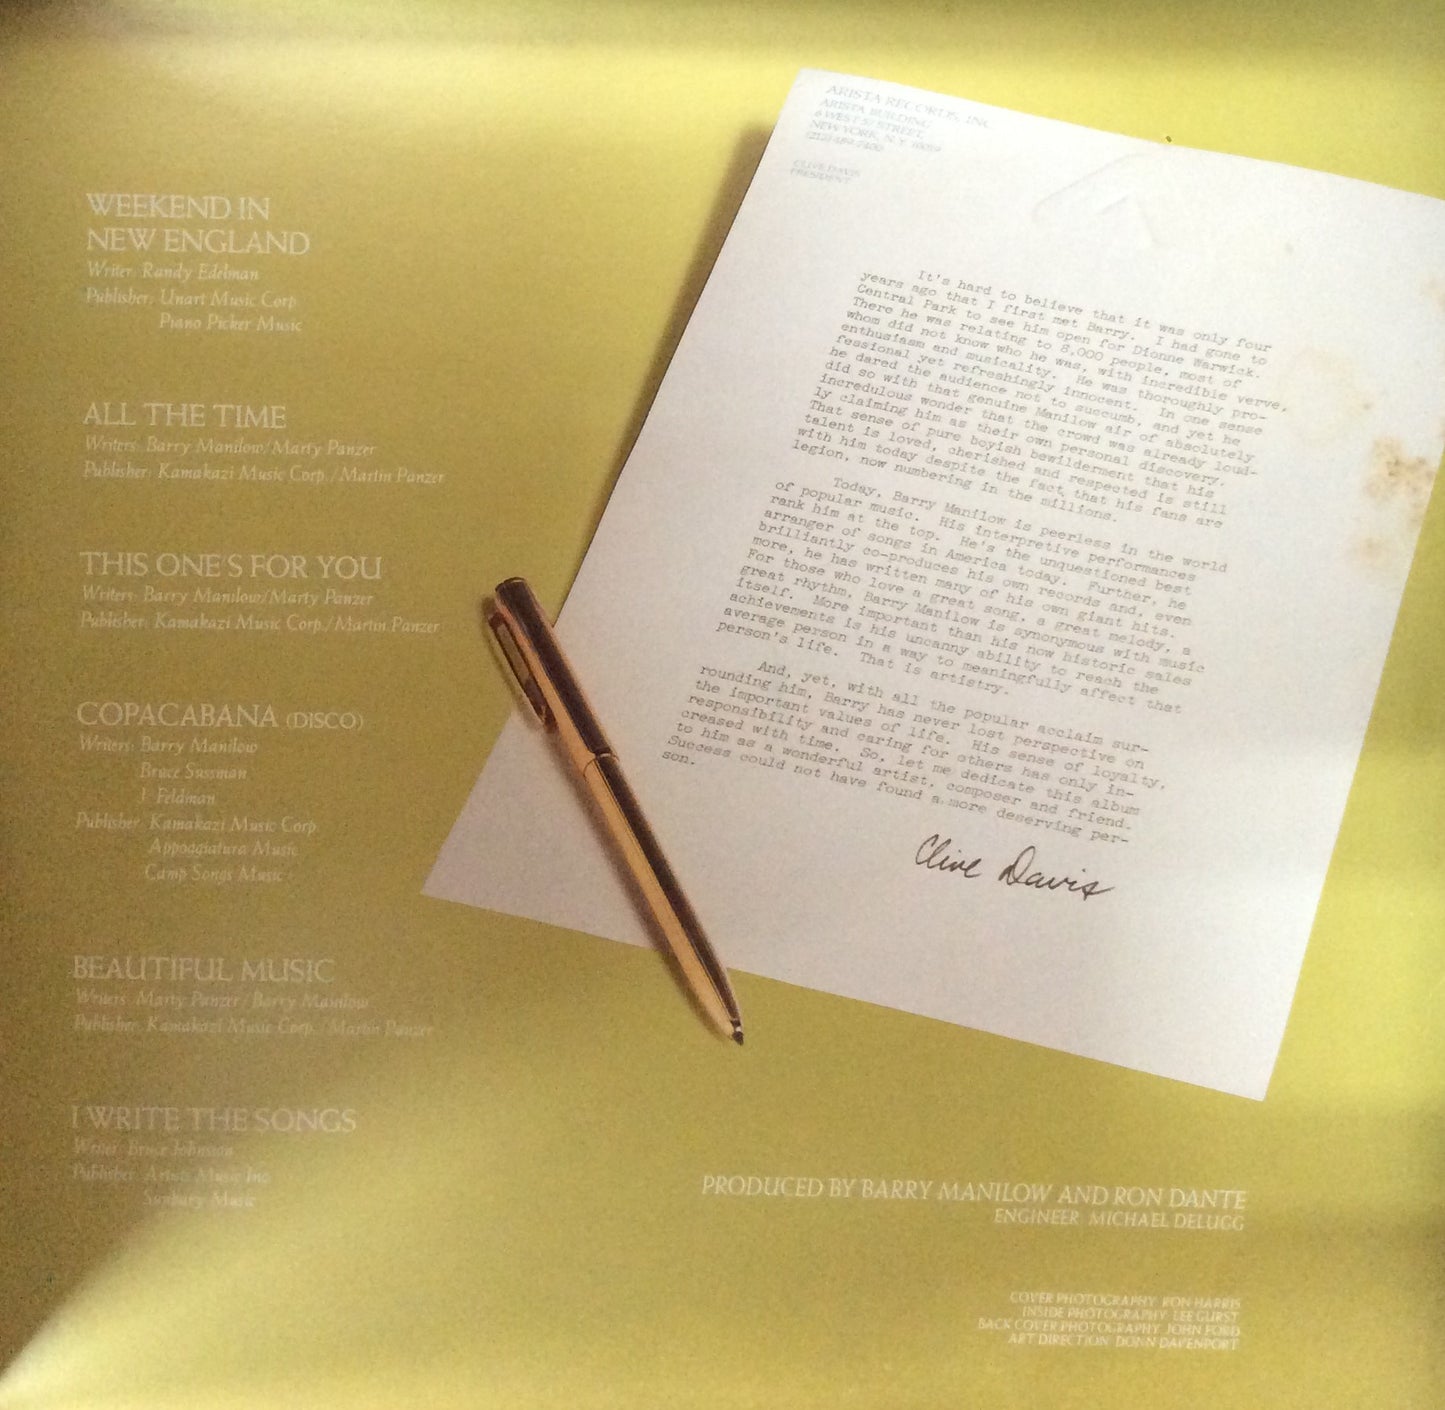 WEEKEND IN
NEW ENGLAND
Writer: Randy Edelman
Publisher: Unart Music Corp
Piano Picker Music
ALL THE TIME
Writers: Barry Manilow/Marty Panzer
Publisher: Kamakazi Music Corp./Martin Panzer
THIS ONE'S FOR YOU
Writers: Barry Manilow/Marty Panzer
Publisher: Kamakazi Music Corp./Martin Panzer
COPACABANA (DISCO)
Writers: Barry Manilow
Bruce Sussman
J. Feldman
Publisher: Kamakazi Music Corp.
Appoggiatura Music
Camp Songs Music
BEAUTIFUL MUSIC
Writers: Marty Panzer/Barry Manilow
Publisher: Kamakazi Music Corp./Martin Panzer
I WRITE THE SONGS
Writer: Bruce Johnston
Publisher: Artists Music Inc
Sunbury Music
ARISTA RECORDS, INC.
ARISTA BUILDING
6 WEST 57 STREET,
NEW YORK, N.Y. 10019
(212) 489-7400
CLIVE DAVIS
PRESIDENT
It's hard to believe that it was only four
years ago that I first met Barry. I had gone to
Central Park to see him open for Dionne Warwick.
There he was relating to 8,000 people, most of
whom did not know who he was, with incredible verve,
enthusiasm and musicality. He was thoroughly pro-
fessional yet refreshingly innocent. In one sense
he dared the audience not to succumb, and yet he
did so with that genuine Manilow air of absolutely
incredulous wonder that the crowd was already loud-
ly claiming him as their own personal discovery.
That sense of pure boyish bewilderment that his
talent is loved, cherished and respected is still
with him today despite the fact that his fans are
legion, now numbering in the millions.
Today, Barry Manilow is peerless in the world
of popular music. His interpretive performances
rank him at the top. He's the unquestioned best
arranger of songs in America today. Further, he
brilliantly co-produces his own records and, even
more, he has written many of his own giant hits.
For those who love a great song, a great melody, a
great rhythm, Barry Manilow is synonymous with music
itself. More important than his now historic sales
achievements is his uncanny ability to reach the
average person in a way to meaningfully affect that
person's life. That is artistry.
And, yet, with all the popular acclaim sur-
rounding him, Barry has never lost perspective on
the important values of life. His sense of loyalty,
responsibility and caring for others has only in-
creased with time. So, let me dedicate this album
to him as a wonderful artist, composer and friend.
Success could not have found a more deserving per-
son.
Clive Davis
PRODUCED BY BARRY MANILOW AND RON DANTE
ENGINEER: MICHAEL DELUGG
COVER PHOTOGRAPHY: RON HARRIS
INSIDE PHOTOGRAPHY: LEE GURST
BACK COVER PHOTOGRAPHY: JOHN FORD
ART DIRECTION: DONN DAVENPORT